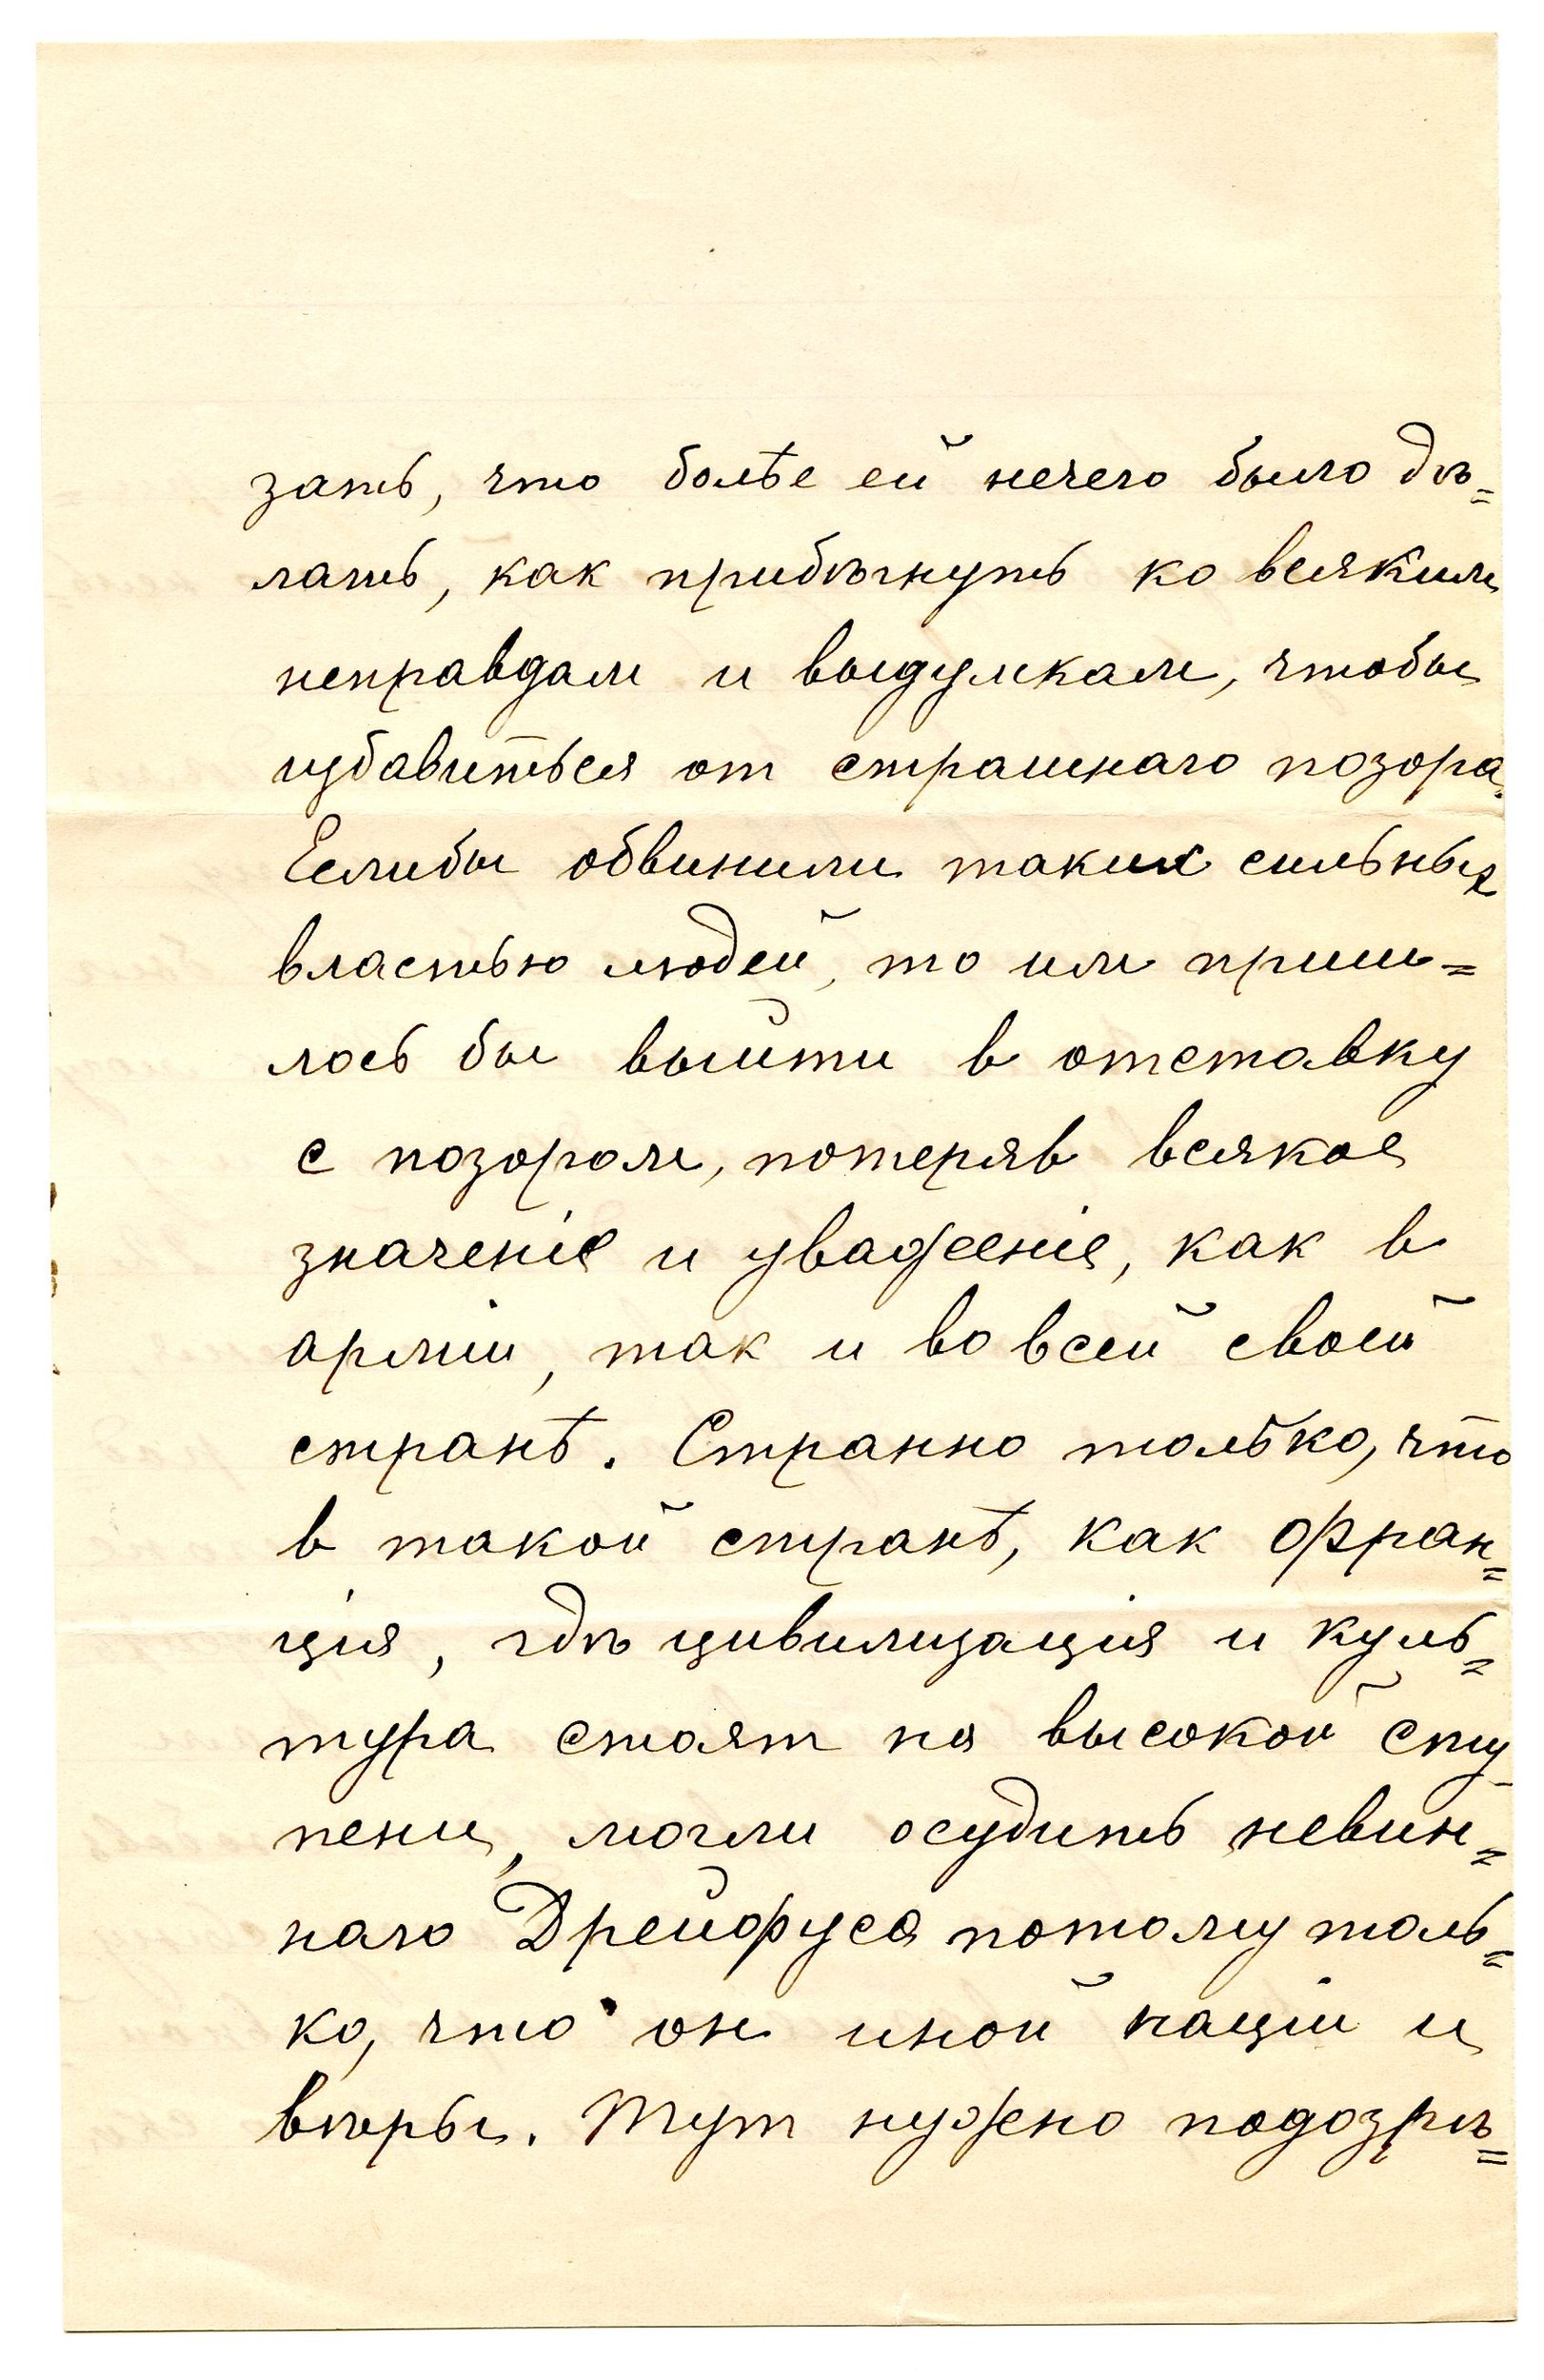 зать, что болѣе ей нечего было дѣ=
лать, как прибѣгнуть ко всяким
неправдам и выдумкам, чтобы
избавиться от страшнаго позора.
Еслибы обвинили таких сильных
властью людей, то им приш=
лось бы выйти в отставку
с позором, потеряв всякое
значеніе и уваженіе, как в
арміи, так и во всей своей
странѣ. Странно только, что
в такой странѣ, как Фран=
ція, гдѣ цивилизація и куль=
тура стоят на высокой сту-
пени, могли осудить невин=
наго Дрейфуса потому толь=
ко, что он иной націи и
вѣры. Тут нужно подозрѣ=